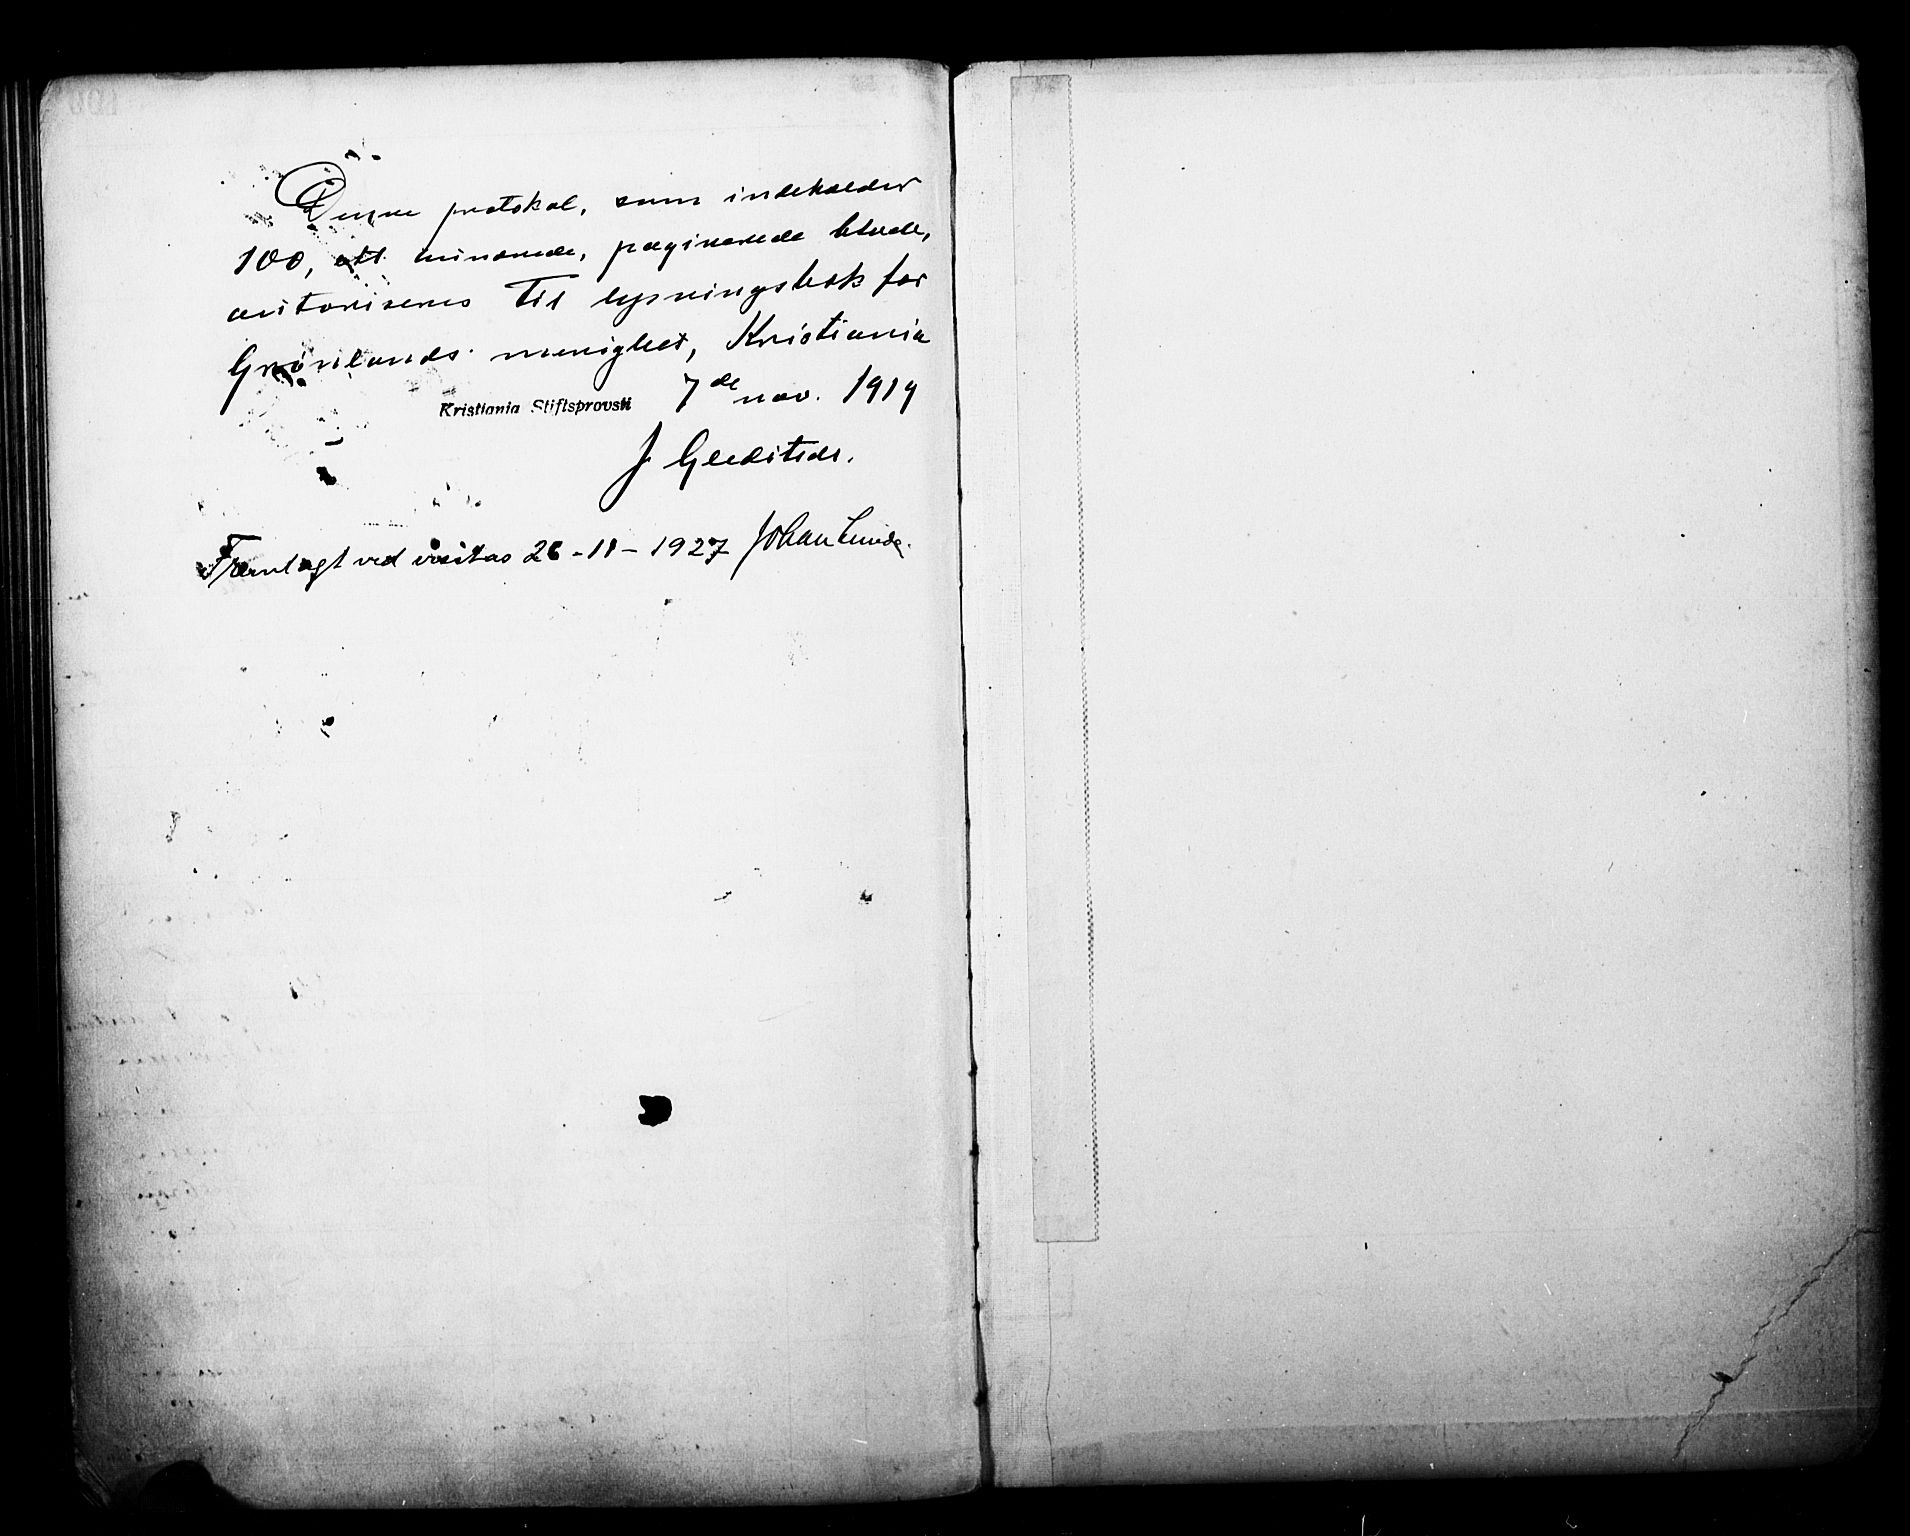 Denne protokol, som indeholder
100, ett hundrede, paginerede blade,
autoriseres til lysningsbok for
Grønlands menighet, Kristiania
Kristiania Stiftsprovsti 7de nov. 1919
J Gleditsch.
Fremlagt ved visitas 26-11-1927 Johan Lunde.